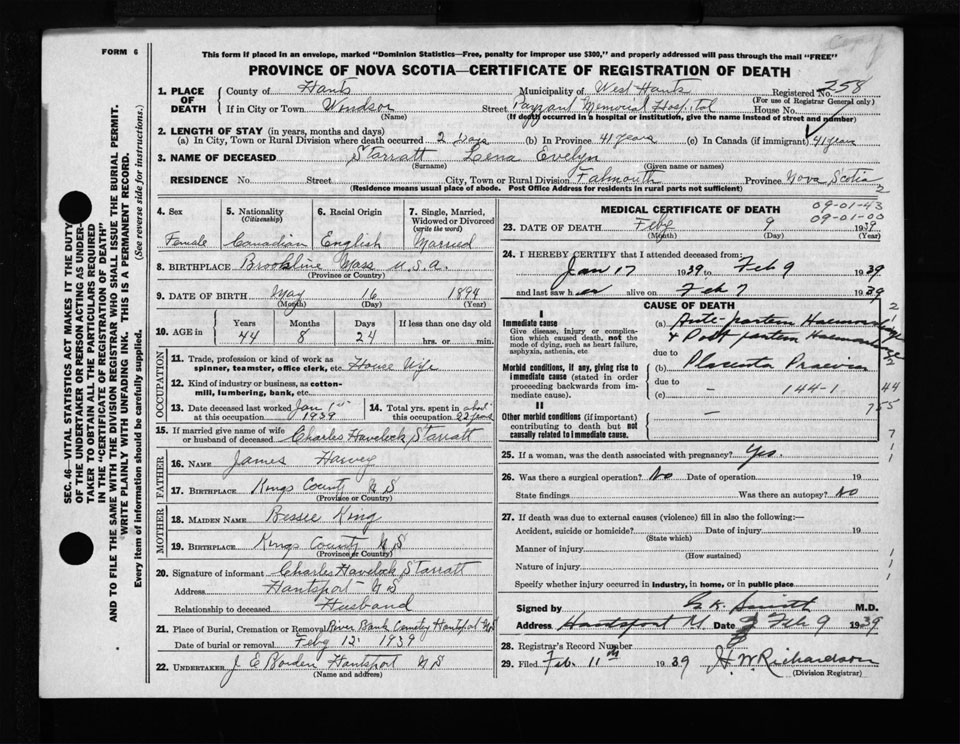 FORM 6
This form if placed in an envelope, marked "Dominion Statistics—Free, penalty for improper use $300," and properly addressed will pass through the mail "FREE"
PROVINCE OF NOVA SCOTIA—CERTIFICATE OF REGISTRATION OF DEATH
SEC. 46—VITAL STATISTICS ACT MAKES IT THE DUTY
OF THE UNDERTAKER OR PERSON ACTING AS UNDER-
TAKER TO OBTAIN ALL THE PARTICULARS REQUIRED
IN THE "CERTIFICATE OF REGISTRATION OF DEATH"
AND TO FILE THE SAME WITH THE DIVISION REGISTRAR WHO SHALL ISSUE THE BURIAL PERMIT.
WRITE PLAINLY WITH UNFADING INK. THIS IS A PERMANENT RECORD.
Every item of information should be carefully supplied. (See reverse side for instructions.)
1. PLACE OF DEATH County of Hants Municipality of West Hants Registered No. 258
(For use of Registrar General only)
If in City or Town Windsor Street Payzant Memorial Hospital House No.
(Name) (If death occurred in a hospital or institution, give the name instead of street and number)
2. LENGTH OF STAY (in years, months and days)
(a) In City, Town or Rural Division where death occurred 2 Days (b) In Province 41 years (c) In Canada (if immigrant) 41 years
3. NAME OF DECEASED Starratt Lena Evelyn
(Surname) (Given name or names)
RESIDENCE No. Street City, Town or Rural Division Falmouth Province Nova Scotia
(Residence means usual place of abode. Post Office Address for residents in rural parts not sufficient)
2
4. Sex 5. Nationality (Citizenship) 6. Racial Origin 7. Single, Married, Widowed or Divorced (write the word)
Female Canadian English Married
8. BIRTHPLACE Brookline Mass U.S.A.
(Province or Country)
9. DATE OF BIRTH May 16 1894
(Month) (Day) (Year)
10. AGE IN Years Months Days If less than one day old
44 8 24 hrs. or min.
OCCUPATION
11. Trade, profession or kind of work as
spinner, teamster, office clerk, etc. House Wife
12. Kind of industry or business, as cotton-
mill, lumbering, bank, etc.
13. Date deceased last worked at this occupation Jan 1st 1939 14. Total yrs. spent in this occupation about 22 years
15. If married give name of wife
or husband of deceased Charles Havelock Starratt
FATHER
16. NAME James Harvey
17. BIRTHPLACE Kings County N S
(Province or Country)
MOTHER
18. MAIDEN NAME Bessie King
19. BIRTHPLACE Kings County N S
(Province or Country)
20. Signature of informant Charles Havelock Starratt
Address Hantsport N S
Relationship to deceased Husband
21. Place of Burial, Cremation or Removal River Bank Cemetry Hantsport N S
Date of burial or removal Feby 12 1939
22. UNDERTAKER J E Borden Hantsport N S
(Name and address)
09-01-43
MEDICAL CERTIFICATE OF DEATH 09-01-00
23. DATE OF DEATH Feby 9 1939
(Month) (Day) (Year)
24. I HEREBY CERTIFY that I attended deceased from:
Jan 17 1939 to Feb 9 1939
and last saw her alive on Feb 7 1939
CAUSE OF DEATH
I
Immediate cause
Give disease, injury or complication which caused death, not the mode of dying, such as heart failure, asphyxia, asthenia, etc.
(a) Ante-partem Haemorrhage
& Post partem Haemorrhage
due to
Morbid conditions, if any, giving rise to immediate cause (stated in order proceeding backwards from immediate cause).
(b) Placenta Praevia
due to
(c) — 144-1 44
II
Other morbid conditions (if important) contributing to death but not causally related to immediate cause.
— 755
25. If a woman, was the death associated with pregnancy? Yes.
26. Was there a surgical operation? No Date of operation 19
State findings Was there an autopsy? No
27. If death was due to external causes (violence) fill in also the following:—
Accident, suicide or homicide? Date of injury 19
(State which)
Manner of injury
(How sustained)
Nature of injury
Specify whether injury occurred in industry, in home, or in public place
Signed by G. K. Smith M.D.
Address Hantsport Date Feb 9 1939
28. Registrar's Record Number
29. Filed Feb. 11th 1939 H. W. Richardson
(Division Registrar)